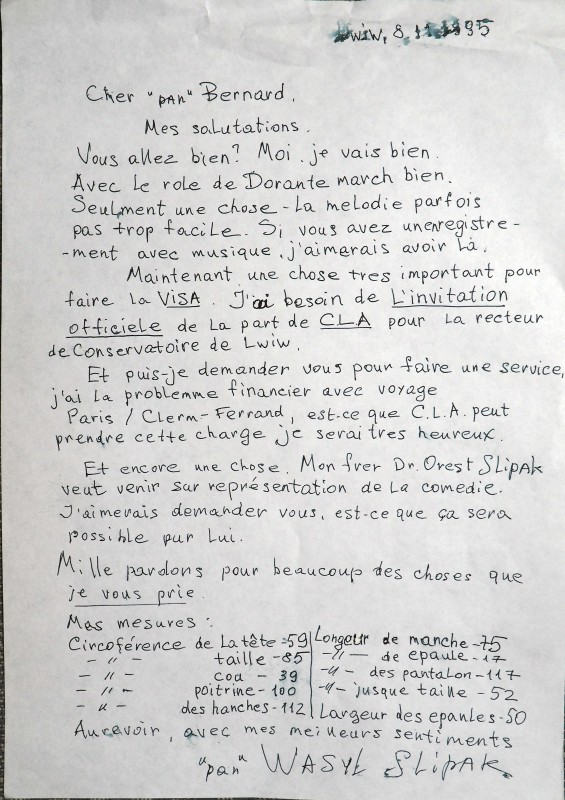 Lwiw, 8.11.1995
Cher "pan" Bernard,
Mes salutations.
Vous allez bien? Moi je vais bien.
Avec le role de Dorante march bien.
Seulment une chose - la melodie parfois
pas trop facile. Si vous avez unenregistre-
-ment avec musique, j'aimarais avoir la.
Maintenant une chose tres important pour
faire la VISA. J'ai besoin de L'invitation
officiele de la part de CLA pour la recteur
de Conservatoire de Lwiw.
Et puis-je demander vous pour faire une service,
j'ai la problemme financier avec voyage
Paris / Clerm-Ferrand, est-ce que C.L.A. peut
prendre cette charge je serai tres heureux.
Et encore une chose. Mon frer Dr. Orest Slipak
veut venir sur représentation de la comedie.
J'aimerais demander vous, est-ce que ça sera
possible pur lui.
Mille pardons pour beaucoup des choses que
je vous prie.
Mes mesures:
Circoférence de la tête - 59 Longeur de manche - 75
- " - taille - 85 - " - de epaule - 17
- " - cou - 39 - " - des pantalon - 117
- " - poitrine - 100 - " - jusque taille - 52
- " - des hanches - 112 Largeur des epanles - 50
Aurevoir, avec mes meileurs sentiments
"pan" WASYL SLIPAK